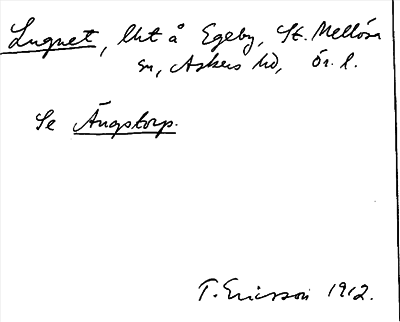 Lugnet, lht å Egeby, St. Mellösa
sn, Askers hd, Ör. l.
Se Ängstorp.
T. Ericsson 1912.